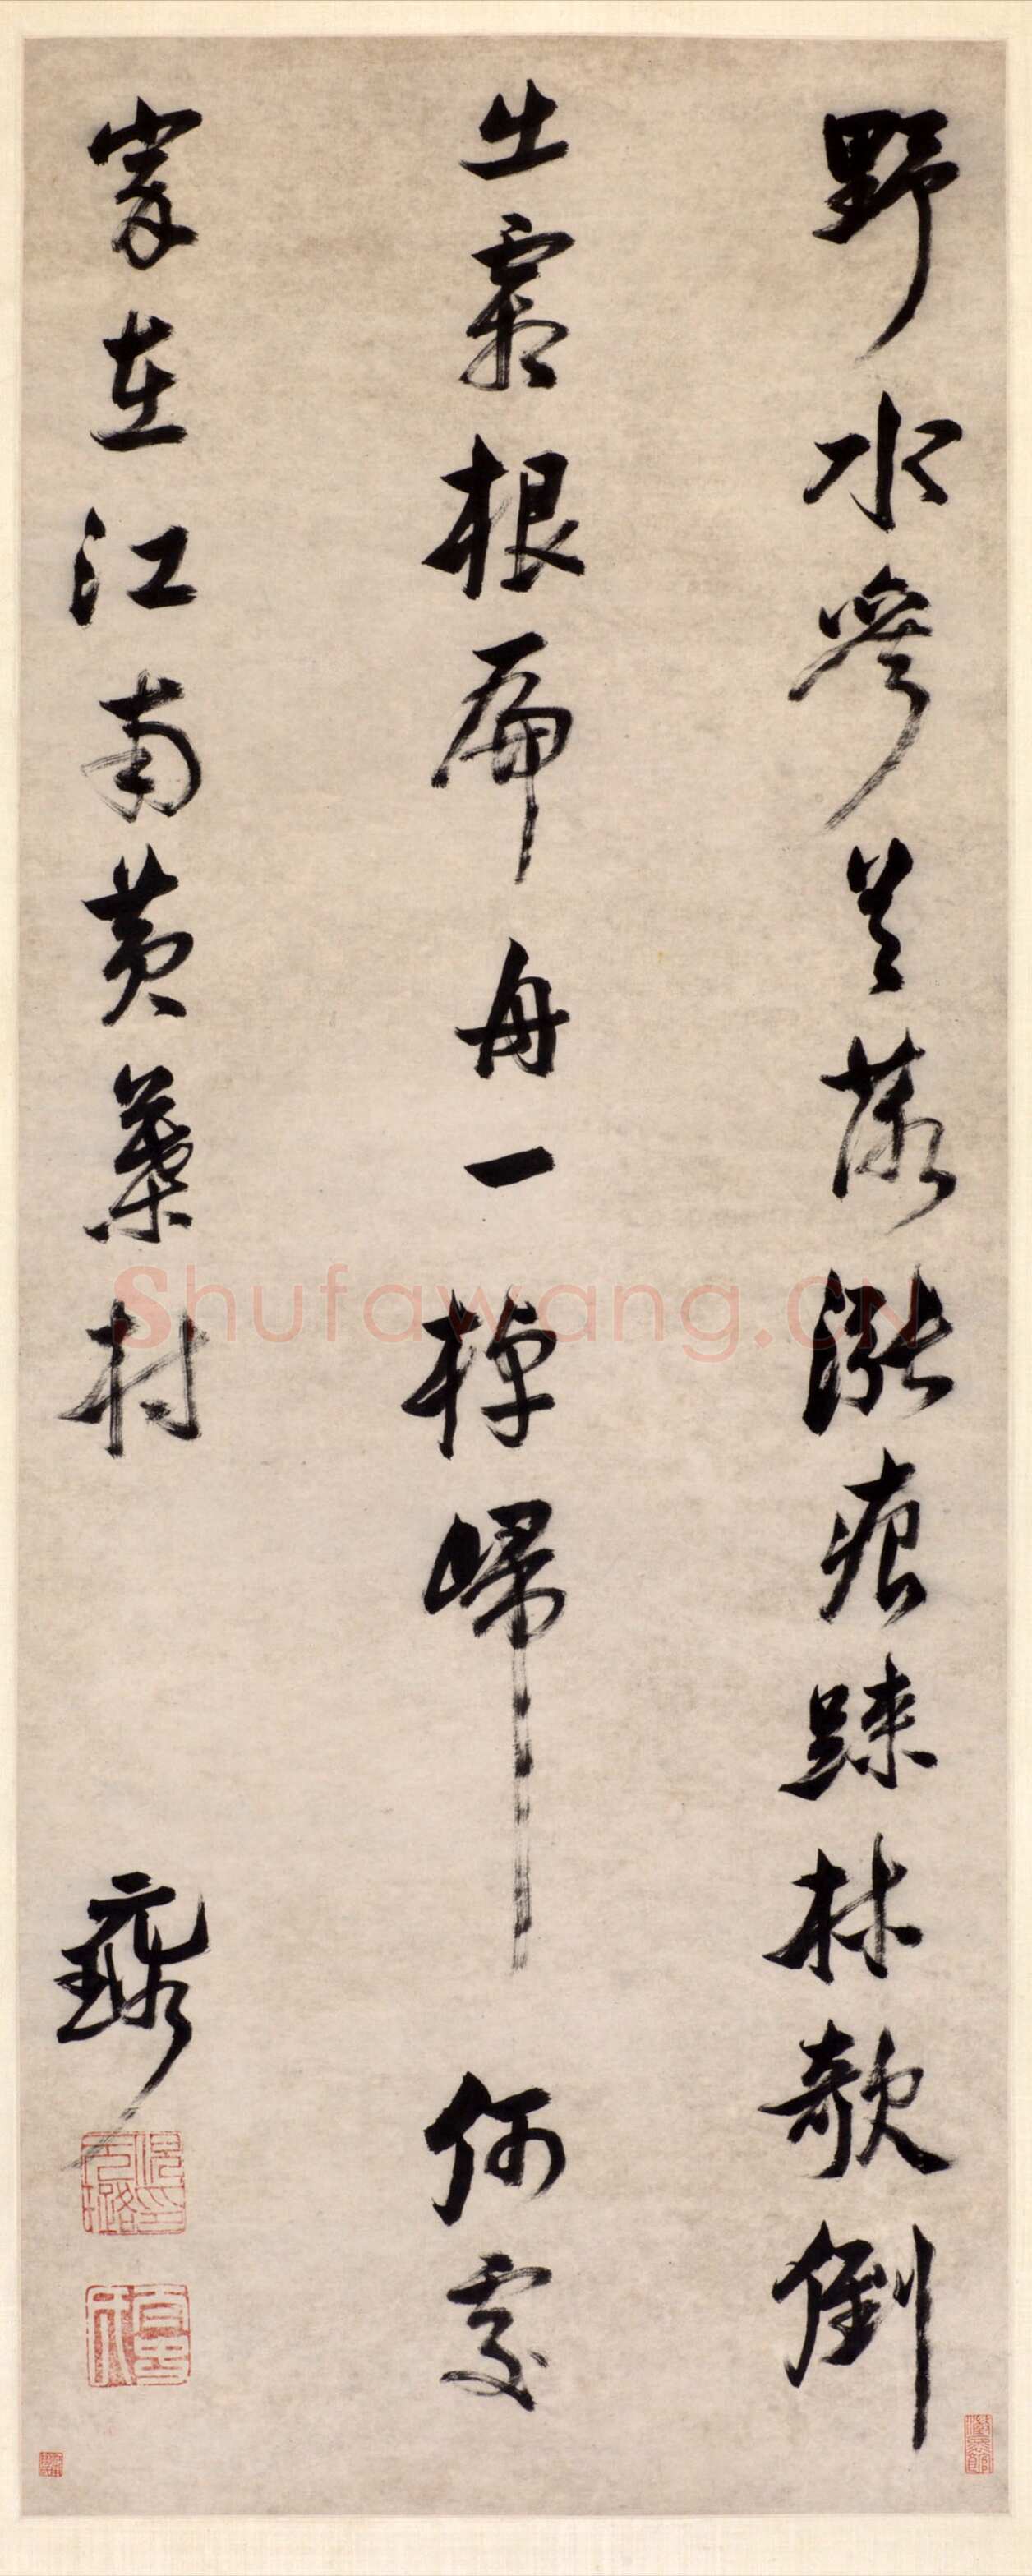 野水參差落漲痕踈林欹倒
出霜根扁舟一棹歸何處
家在江南黃葉村
元璐
倪元璐印
Shufawang.CN